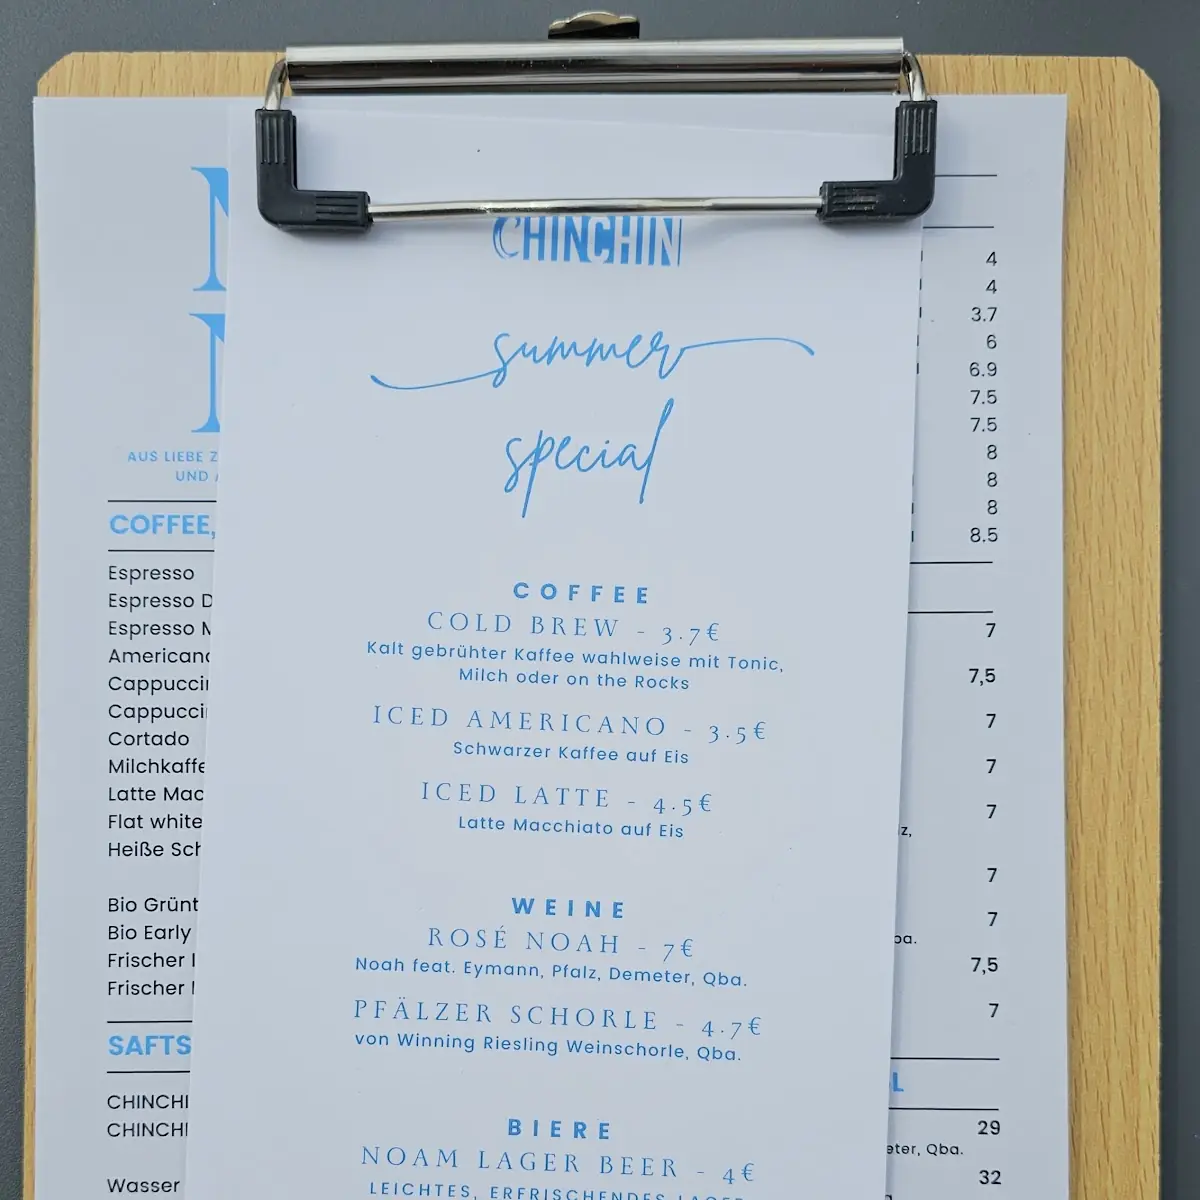 CHINCHIN
summer
special
COFFEE
COLD BREW - 3.7€
Kalt gebrühter Kaffee wahlweise mit Tonic,
Milch oder on the Rocks
ICED AMERICANO - 3.5€
Schwarzer Kaffee auf Eis
ICED LATTE - 4.5€
Latte Macchiato auf Eis
WEINE
ROSÉ NOAH - 7€
Noah feat. Eymann, Pfalz, Demeter, Qba.
PFÄLZER SCHORLE - 4.7€
von Winning Riesling Weinschorle, Qba.
BIERE
NOAM LAGER BEER - 4€
LEICHTES, ERFRISCHENDES LAGER
AUS LIEBE Z
UND
COFFEE,
Espresso
Espresso D
Espresso M
American
Cappucci
Cappucci
Cortado
Milchkaffe
Latte Mac
Flat white
Heiße Sch
Bio Grünt
Bio Early
Frischer
Frischer
SAFTS
CHINCHI
CHINCHI
Wasser
4
4
3.7
6
6.9
7.5
7.5
8
8
8
8.5
7
7,5
7
7
7
z,
7
7
ba.
7,5
7
L
29
eter, Qba.
32